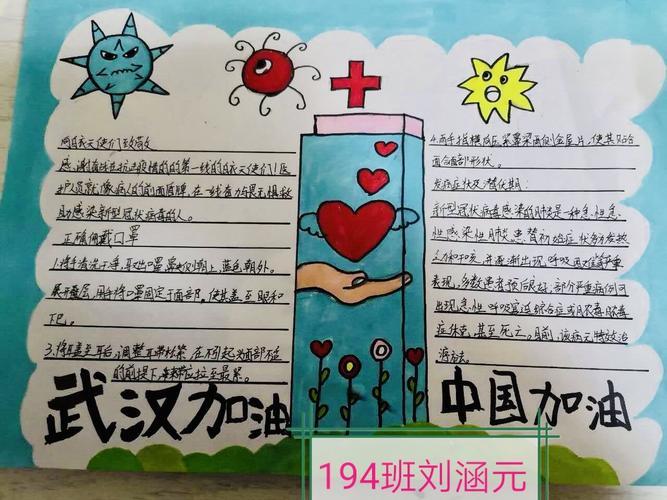 向白衣天使们致敬
感谢奋战在抗疫的第一线的白衣天使们!医
护人员就像病人的前面盾牌,在一线奋力与畏惧救
助感染新型冠状病毒的人。
正确佩戴口罩
1.将手清洗干净,取出口罩,鼻夹侧朝上,蓝色朝外。
展开叠层,用手将口罩固定于面部。使其盖至眼和
下巴。
3.将 盖至耳后,调整 带松紧,在不引起面部不适
的前提下 带应拉至最紧。
4.两手指横 压紧鼻梁两侧金属片,使其贴合
面部形状。
发病症状及潜伏期:
新型冠状病毒感染的肺炎是一种急性急
性感染性肺炎患者初始症状多为发热
和干咳,并逐渐出现呼吸困难等严重
表现,多数患者预后良好,部分严重病例可
出现急性呼吸窘迫综合症或脓毒
症休克,甚至死亡。目前,该病无特效治
疗方法。
武汉加油
中国加油
194班刘涵元